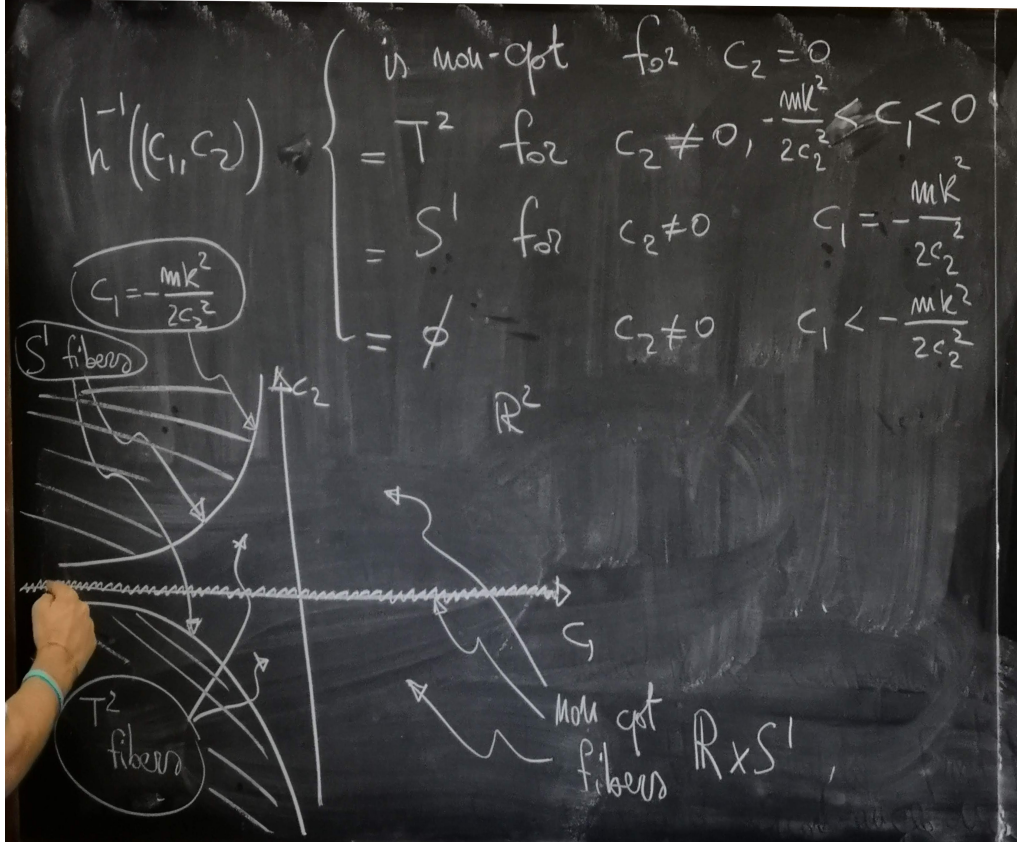 is non-cpt for C₂ = 0
h⁻¹((C₁, C₂)) = T² for C₂ ≠ 0, -mk²/2C₂² < C₁ < 0
= S¹ for C₂ ≠ 0 C₁ = -mk²/2C₂²
= ϕ C₂ ≠ 0 C₁ < -mk²/2C₂²
C₁ = -mk²/2C₂²
S¹ fibers
C₂
ℝ²
C₁
T² fibers
non cpt fibers ℝ×S¹,